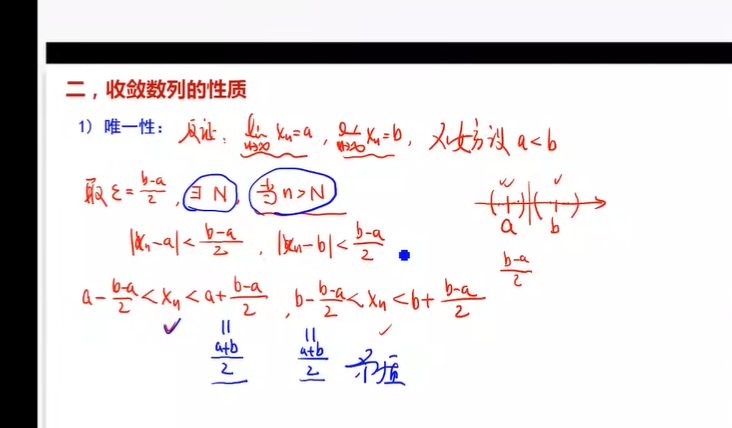 二，收敛数列的性质
1）唯一性： 反证. lim n→∞ xₙ=a , lim n→∞ xₙ=b, 不妨设 a<b
取 ε= (b-a)/2 , ∃ N , 当 n>N
|xₙ-a| < (b-a)/2 , |xₙ-b| < (b-a)/2
a b
(b-a)/2
a- (b-a)/2 < xₙ < a+ (b-a)/2 , b- (b-a)/2 < xₙ < b+ (b-a)/2
= (a+b)/2 = (a+b)/2 矛盾